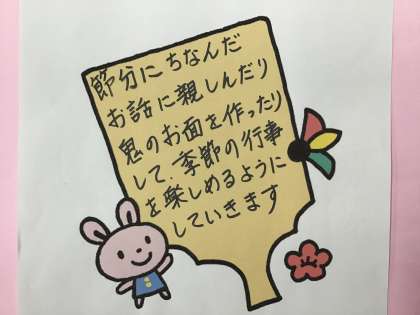 節分にちなんだ
お話に親しんだり
鬼のお面を作ったり
して、季節の行事
を楽しめるように
していきます